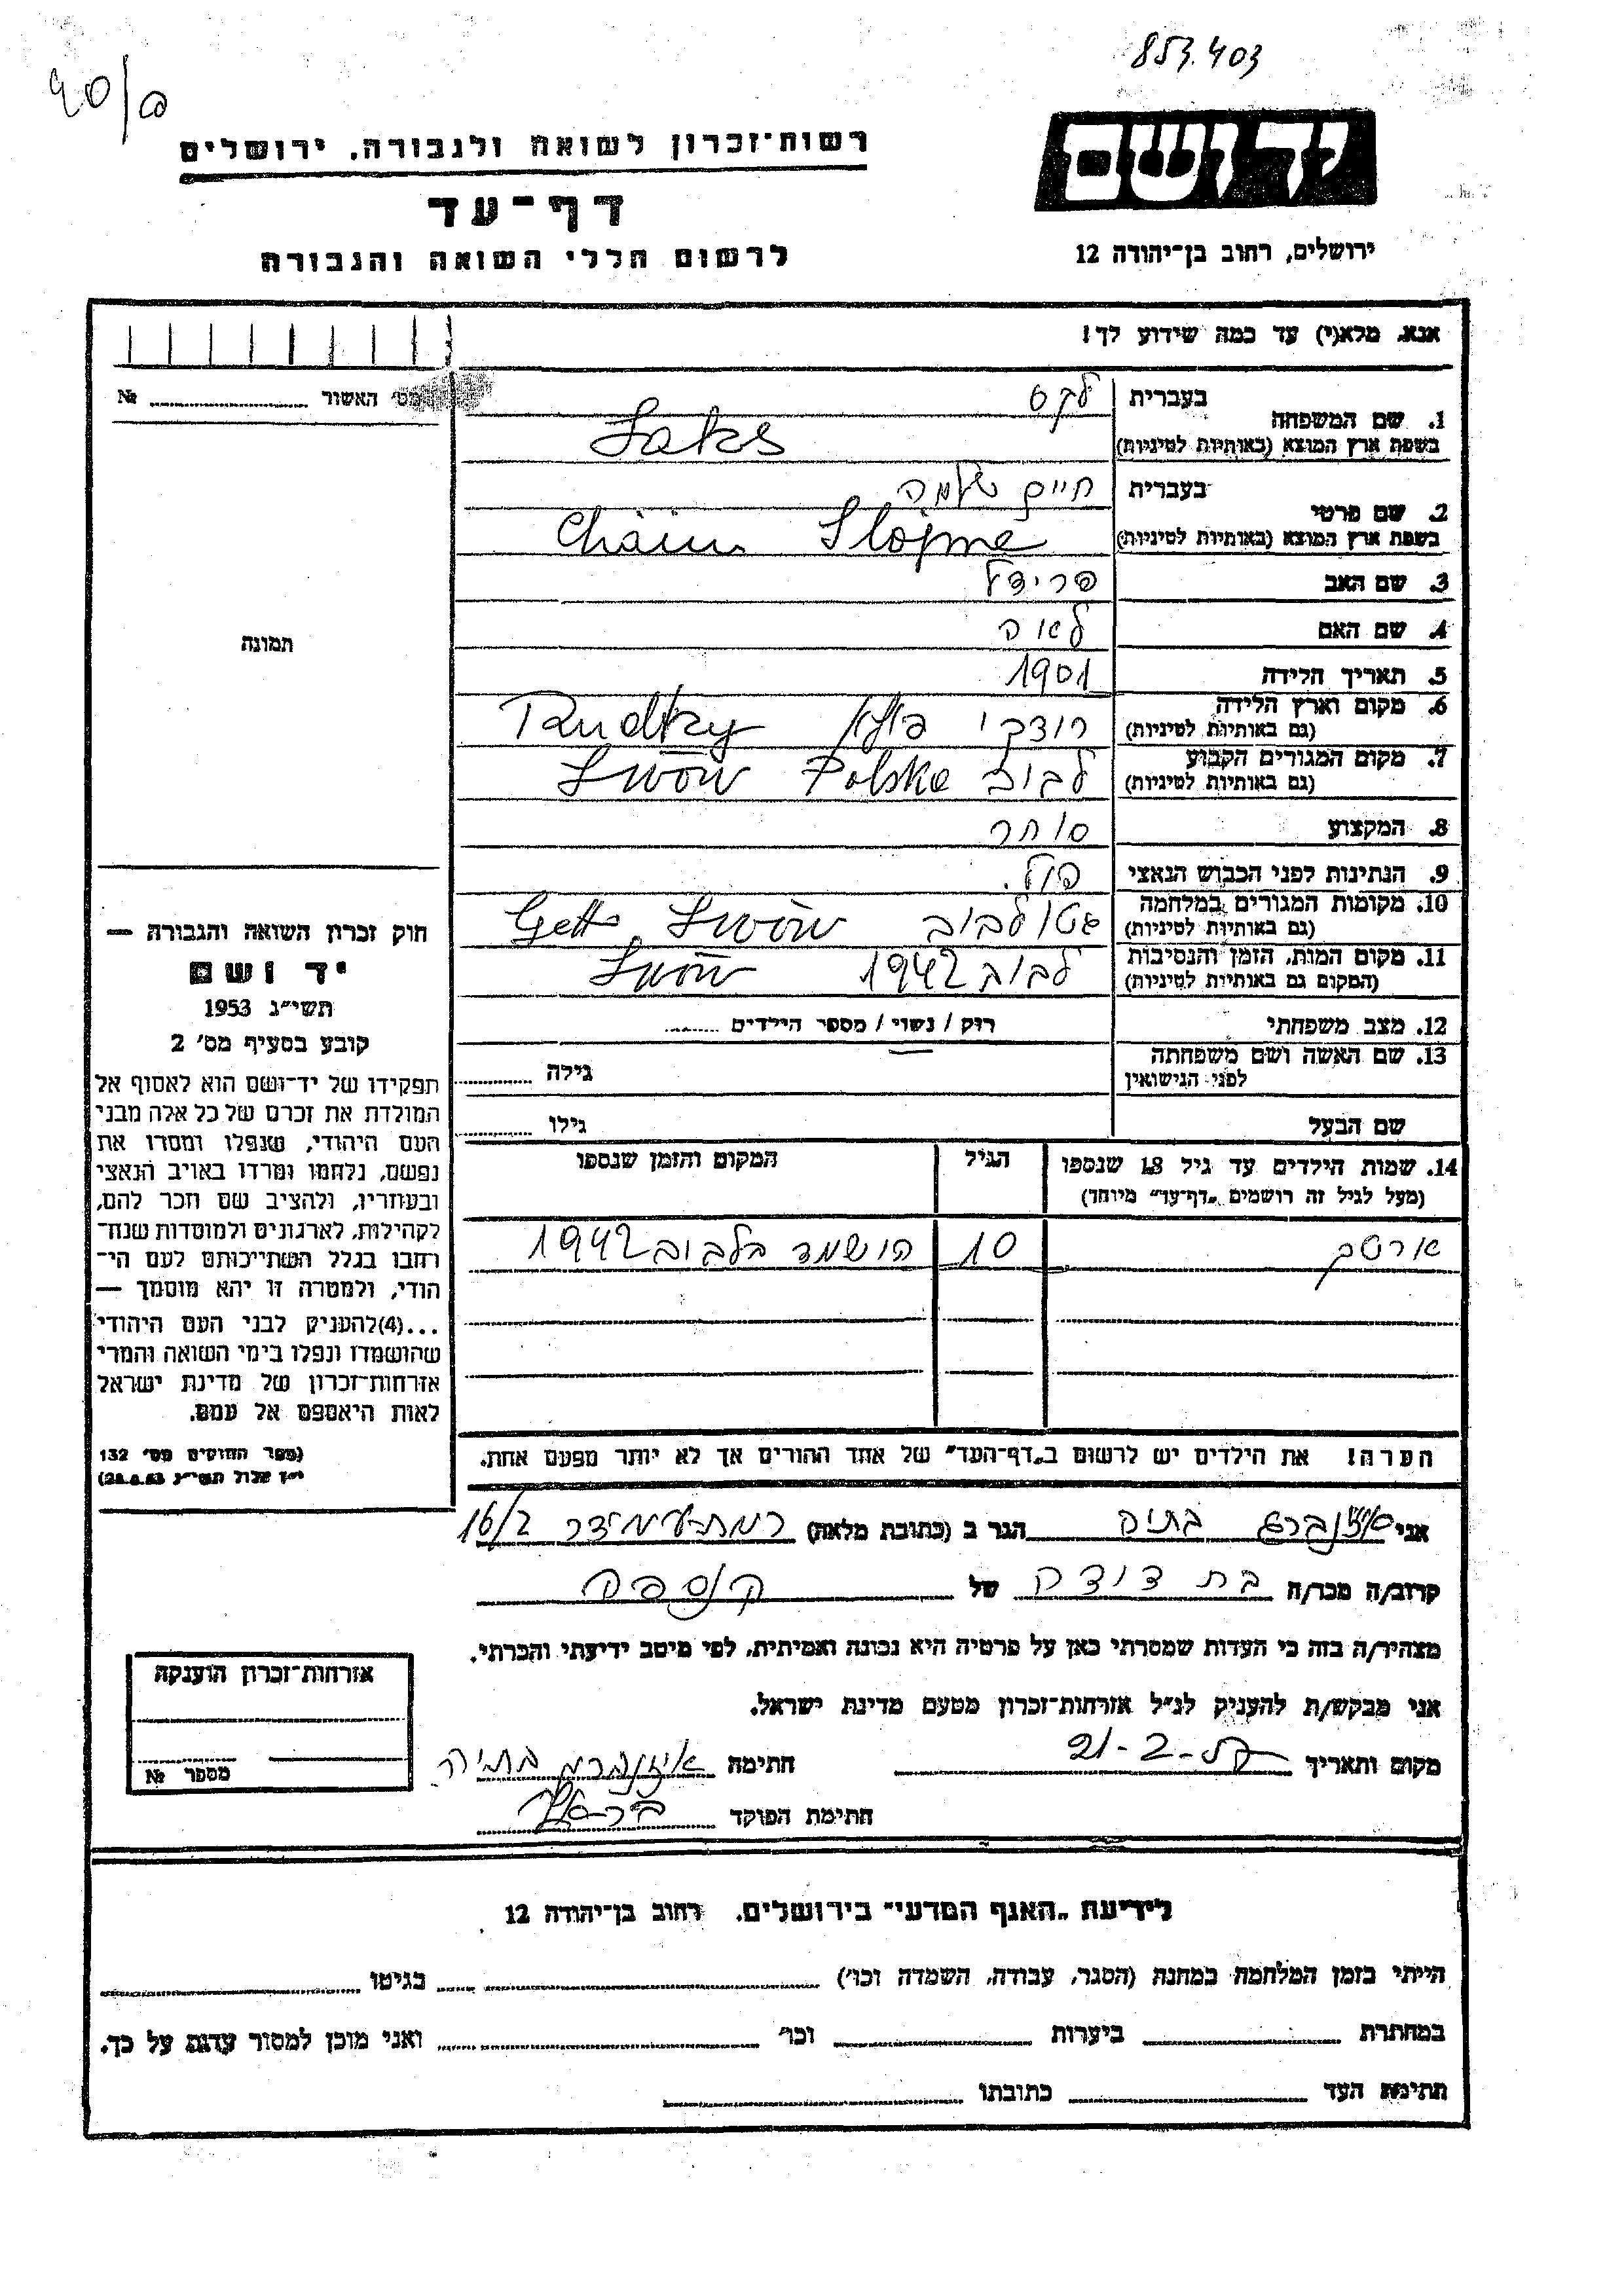 853.403
40/ם
יד ושם
רשות־זכרון לשואה ולגבורה, ירושלים
דף־עד
לרשום חללי השואה והגבורה
ירושלים, רחוב בן־יהודה 12
אנא, מלא(י) עד כמה שידוע לך!
מס' האשור № 
1. שם המשפחה בעברית לקס
בשפת ארץ המוצא (באותיות לטיניות) Laks
2. שם פרטי בעברית חיים שלמה
בשפת ארץ המוצא (באותיות לטיניות) Chaim Slojme
3. שם האב פרידל
4. שם האם לאה
5. תאריך הלידה 1901
6. מקום וארץ הלידה (גם באותיות לטיניות) רודקי פולין Rudky
7. מקום המגורים הקבוע (גם באותיות לטיניות) לבוב Lwów Polska
8. המקצוע סוחר
9. הנתינות לפני הכבוש הנאצי פול.
10. מקומות המגורים במלחמה (גם באותיות לטיניות) גטו לבוב Getto Lwów
11. מקום המות, הזמן והנסיבות (המקום גם באותיות לטיניות) לבוב 1942 Lwów
12. מצב משפחתי רוק / נשוי / מספר הילדים
13. שם האשה ושם משפחתה לפני הנישואין גילה
שם הבעל גילו
14. שמות הילדים עד גיל 18 שנספו הגיל המקום והזמן שנספו
(מעל לגיל זה רושמים „דף־עד" מיוחד)
10 הושמד בלבוב 1942
הערה! את הילדים יש לרשום ב„דף־העד" של אחד ההורים אך לא יותר מפעם אחת.
תמונה
חוק זכרון השואה והגבורה —
יד ושם
תשי״ג 1953
קובע בסעיף מס' 2
תפקידו של יד־ושם הוא לאסוף אל
המולדת את זכרם של כל אלה מבני
העם היהודי, שנפלו ומסרו את
נפשם, נלחמו ומרדו באויב הנאצי
ובעוזריו, ולהציב שם וזכר להם,
לקהילות, לארגונים ולמוסדות שנח־
רבו בגלל השתייכותם לעם הי־
הודי, ולמטרה זו יהא מוסמך —
...(4)להעניק לבני העם היהודי
שהושמדו ונפלו בימי השואה והמרי
אזרחות־זכרון של מדינת ישראל
לאות היאספם אל עמם.
(ספר החוקים מס' 132
י״ז אלול תשי״ג 28.8.53)
אני איזנברג בתיה הגר ב (כתובת מלאה) רמת עמידר 16/2
קרוב/ה מכר/ה בת דודה של הנספה
מצהיר/ה בזה כי העדות שמסרתי כאן על פרטיה היא נכונה ואמיתית, לפי מיטב ידיעתי והכרתי.
אני מבקש/ת להעניק לנ״ל אזרחות־זכרון מטעם מדינת ישראל.
מקום ותאריך 21-2- חתימה איזנברג בתיה
חתימת הפוקד
אזרחות־זכרון הוענקה
מספר №
לידיעת „האגף המדעי" בירושלים, רחוב בן־יהודה 12
הייתי בזמן המלחמה במחנה (הסגר, עבודה, השמדה וכו') בגיטו
במחתרת ביערות וכו' ואני מוכן למסור עדות על כך.
חתימת העד כתובתו